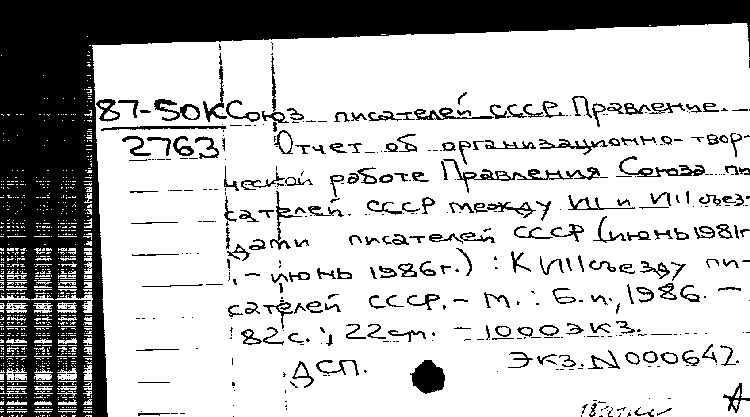 87-50К Союз писателей СССР. Правление.
2763 Отчет об организационно-твор-
ческой работе Правления Союза пи-
сателей СССР между VII и VIII съез-
дами писателей СССР (июнь 1981г.
- июнь 1986г.) : К VIII съезду пи-
сателей СССР. - М. : Б.и., 1986. -
82с. ; 22см. - 1000экз.
ДСП. Экз. N 000642.